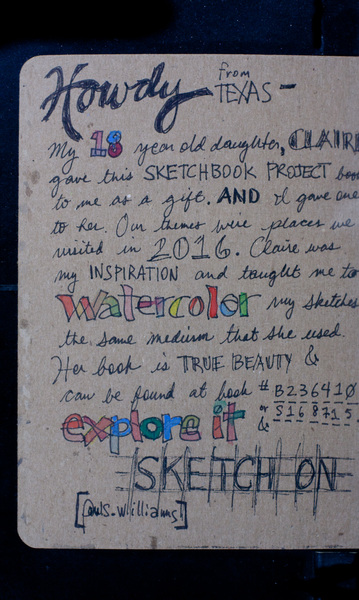 Howdy from TEXAS —
My 18 year old daughter, CLAIRE
gave this SKETCHBOOK PROJECT book
to me as a gift. AND I gave one
to her. Our themes wire places we
visited in 2016. Claire was
my INSPIRATION and taught me to
watercolor my sketches
the same medium that she used.
Her book is TRUE BEAUTY &
can be found at book # B236410
or S168715
&
explore it
SKETCH ON